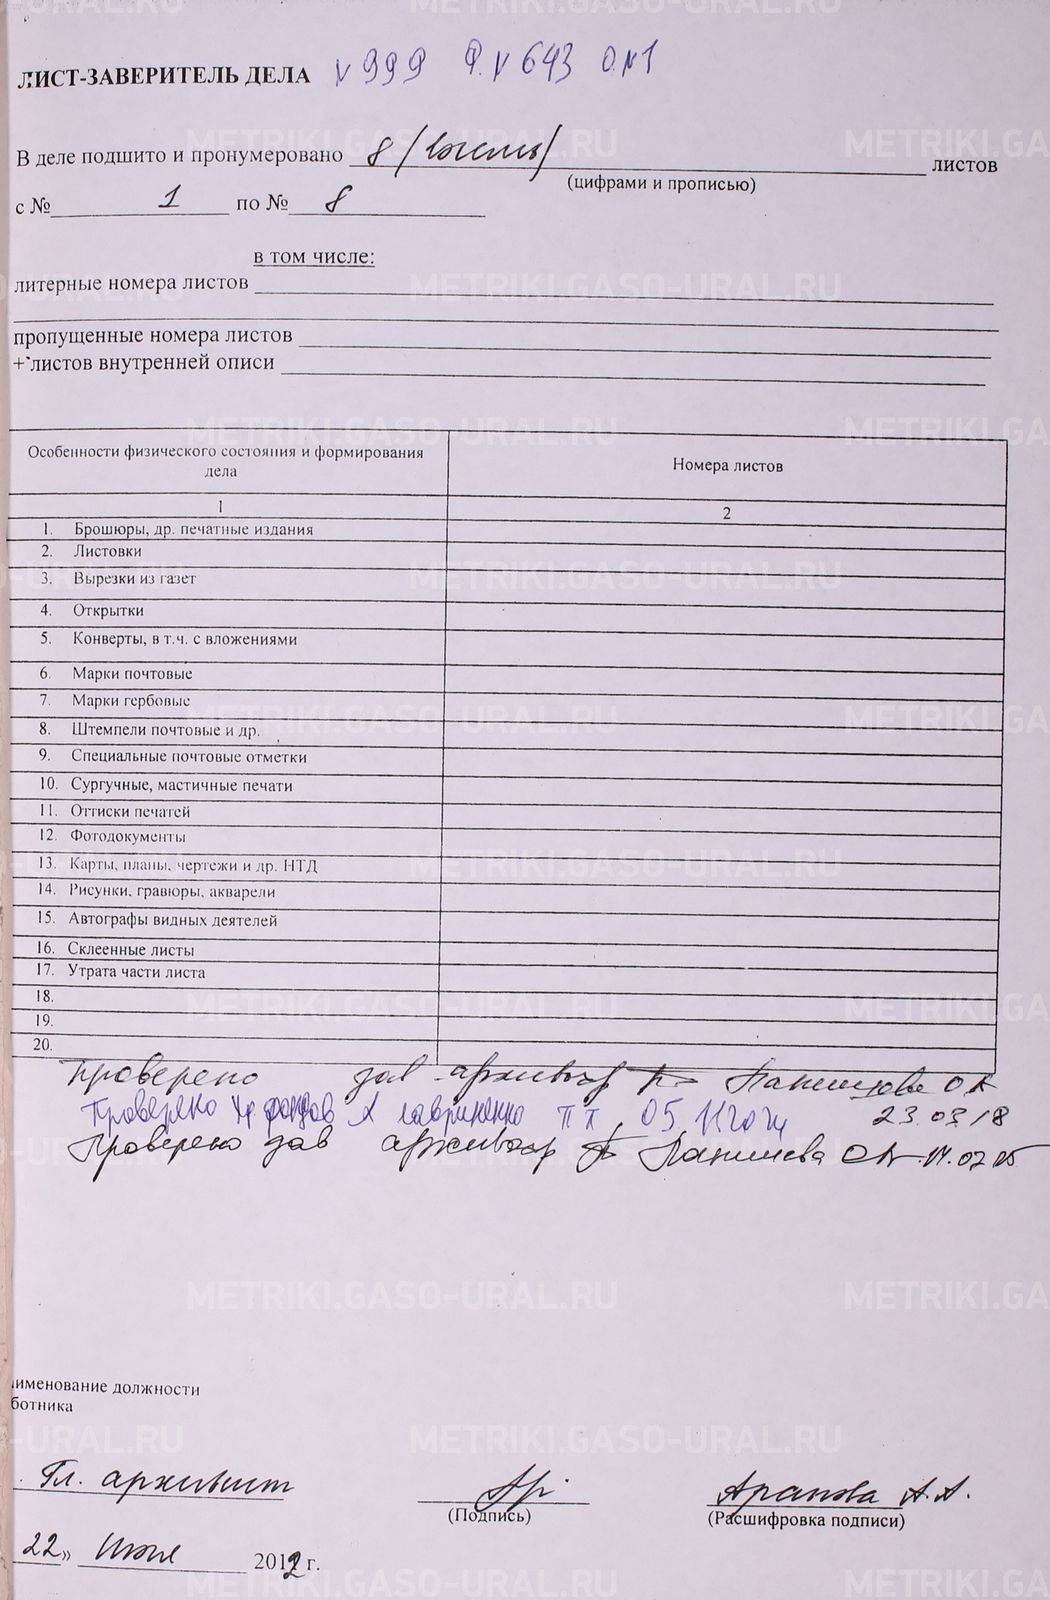 ЛИСТ-ЗАВЕРИТЕЛЬ ДЕЛА № 999 Ф. № 643 О. № 1
В деле подшито и пронумеровано 8 /восемь/ листов
(цифрами и прописью)
с № 1 по № 8
в том числе:
литерные номера листов
пропущенные номера листов
+ листов внутренней описи
Особенности физического состояния и формирования дела
Номера листов
1
2
1. Брошюры, др. печатные издания
2. Листовки
3. Вырезки из газет
4. Открытки
5. Конверты, в т.ч. с вложениями
6. Марки почтовые
7. Марки гербовые
8. Штемпели почтовые и др.
9. Специальные почтовые отметки
10. Сургучные, мастичные печати
11. Оттиски печатей
12. Фотодокументы
13. Карты, планы, чертежи и др. НТД
14. Рисунки, гравюры, акварели
15. Автографы видных деятелей
16. Склеенные листы
17. Утрата части листа
18.
19.
20.
Проверено зав архивохр О.А.
23.03.18
Проверено хр. фондов
Проверено зав архивохр
именование должности
ботника
Гл. архивист
(Подпись)
(Расшифровка подписи)
22» 2012 г.
METRIKI.GASO-URAL.RU